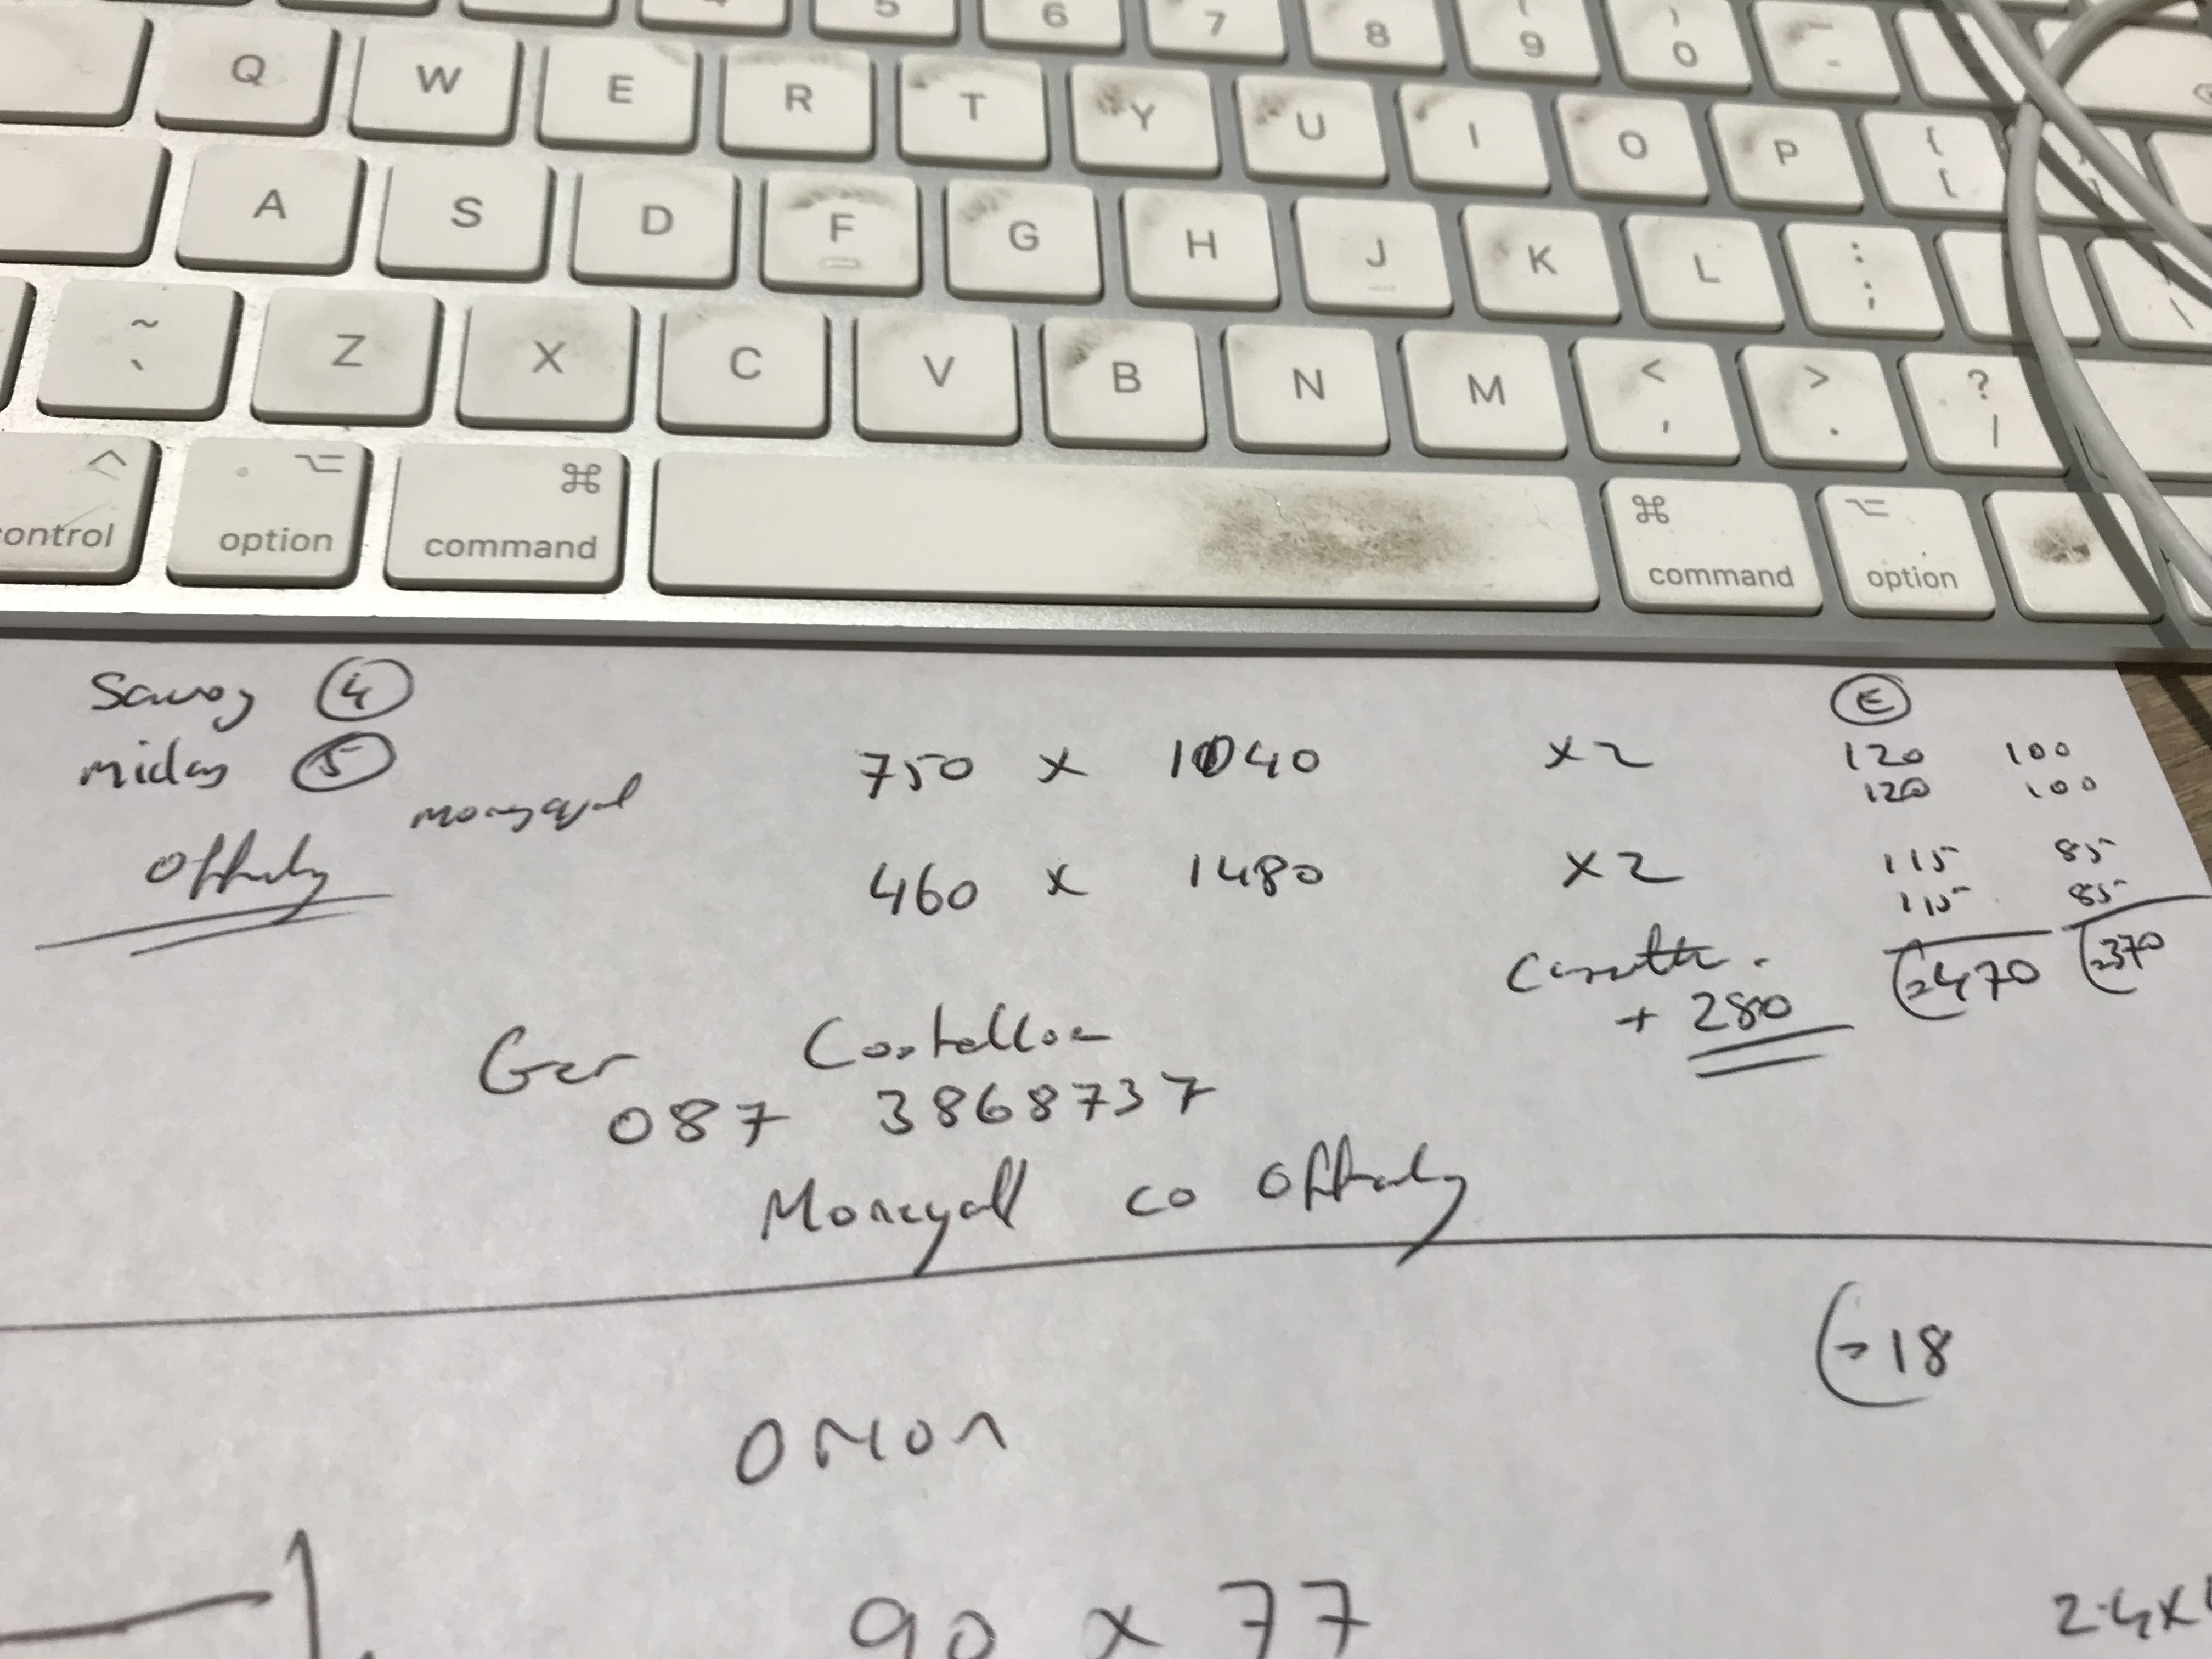 5 6 7 8 ( 9 ) 0 -
Q W E R T Y U I O P { [
A S D F G H J K L : ;
~ ` Z X C V B N M < , > . ? /
control option command command option
Savoy 4 €
midas 5 750 x 1040 x2 120 100
Moneygall 120 100
Offaly 460 x 1480 x2 115 85
115 85
€470 €370
+ 280
Ger Costelloe
087 3868737
Moneygall co Offaly
€18
Orion
90 x 77 2.4x